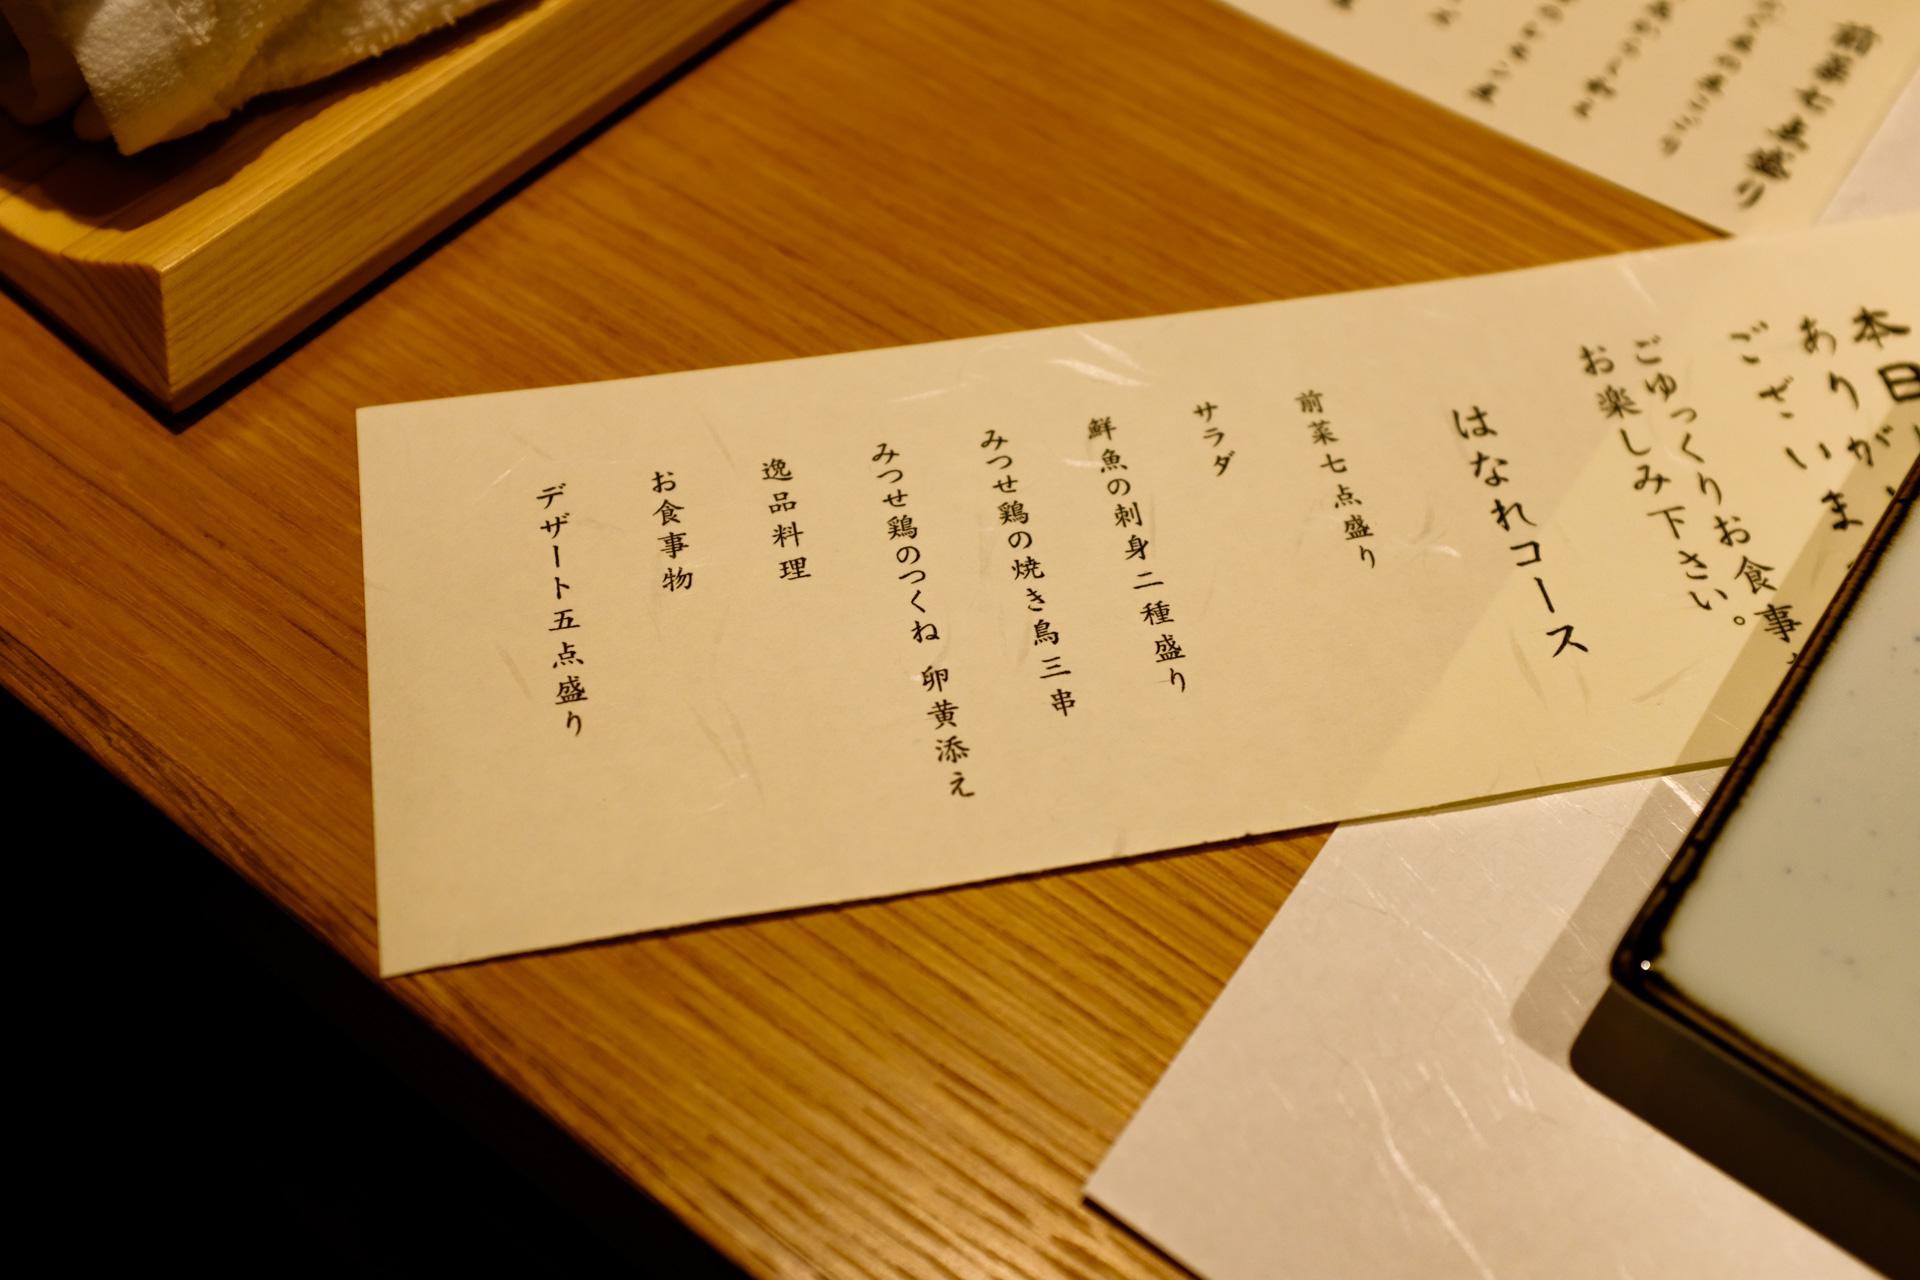 本日
ありが
ございま
ごゆっくりお食事
お楽しみ下さい。
はなれコース
前菜七点盛り
サラダ
鮮魚の刺身二種盛り
みつせ鶏の焼き鳥三串
みつせ鶏のつくね 卵黄添え
逸品料理
お食事物
デザート五点盛り
前菜七点盛り